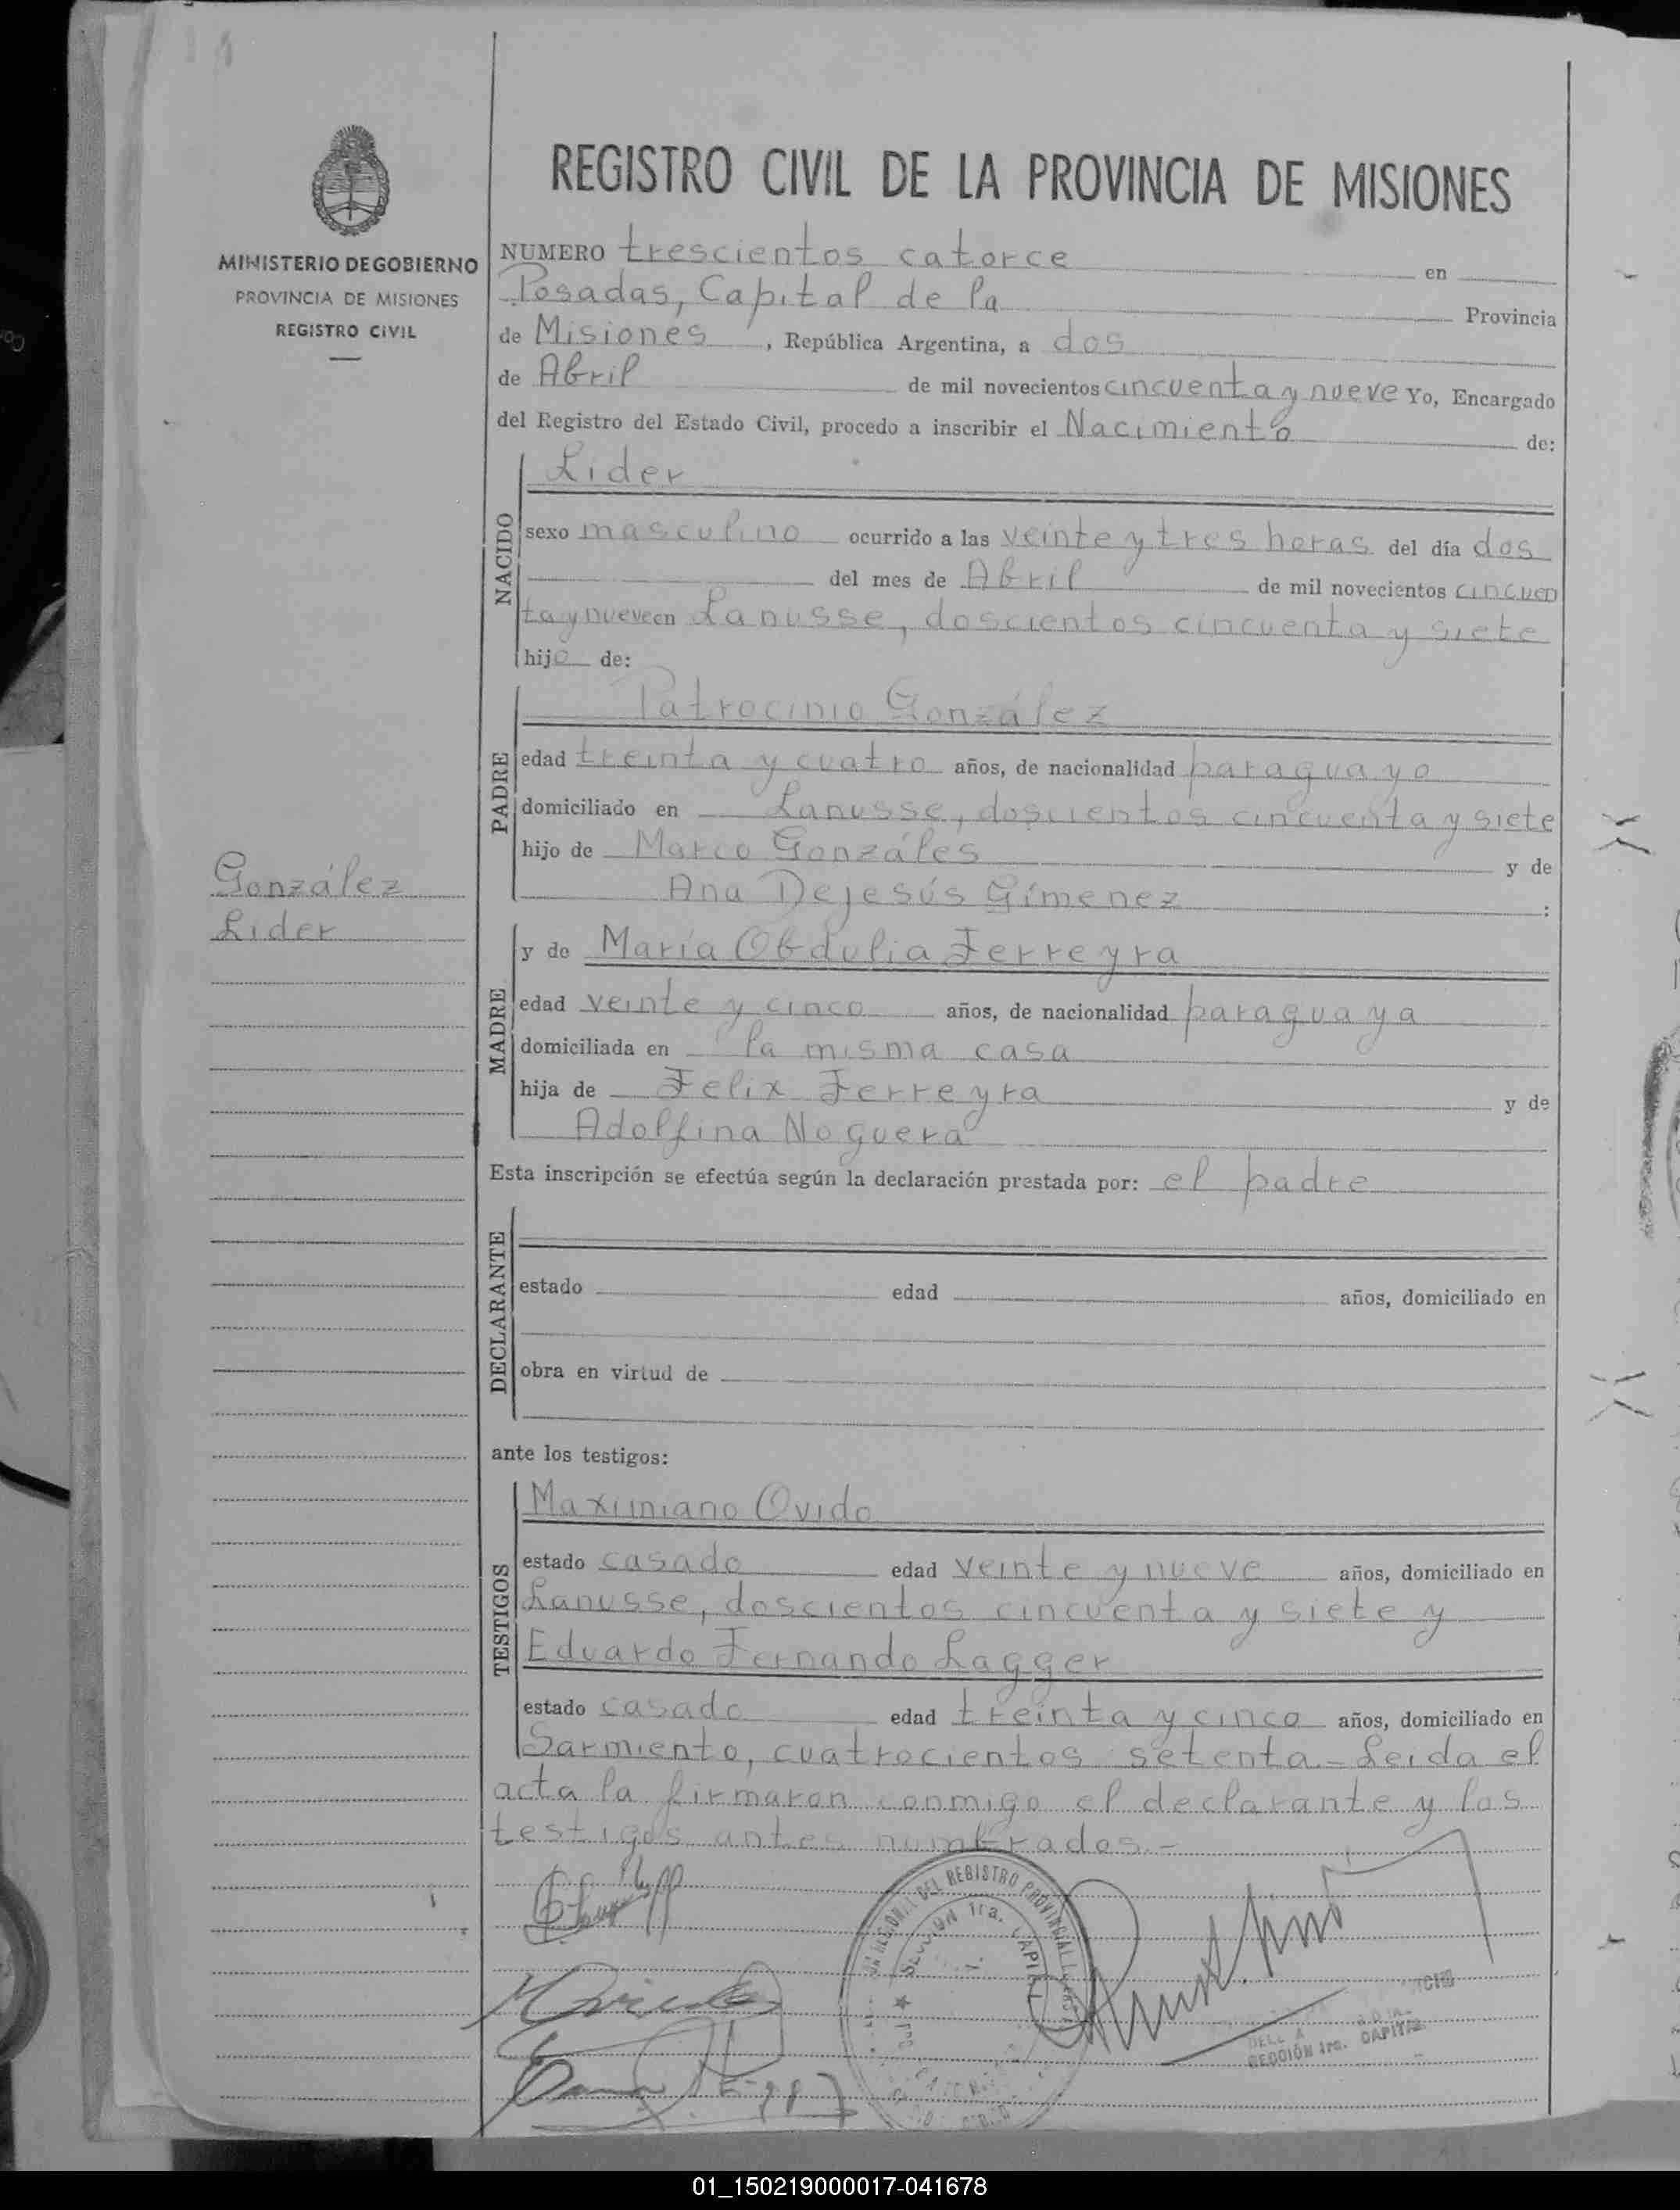 REGISTRO CIVIL DE LA PROVINCIA DE MISIONES
MINISTERIO DE GOBIERNO
PROVINCIA DE MISIONES
REGISTRO CIVIL
NUMERO trescientos catorce en
Posadas, Capital de la Provincia
de Misiones, República Argentina, a dos
de Abril de mil novecientos cincuenta y nueve Yo, Encargado
del Registro del Estado Civil, procedo a inscribir el Nacimiento de:
NACIDO
Lider
sexo masculino ocurrido a las veinte y tres horas del día dos
del mes de Abril de mil novecientos cincuen
ta y nueve en Lanusse, doscientos cincuenta y siete
hijo de:
PADRE
Patrocinio González
edad treinta y cuatro años, de nacionalidad paraguayo
domiciliado en Lanusse, doscientos cincuenta y siete
hijo de Marco Gonzáles y de
Ana Dejesús Gímenez :
González
Lider
MADRE
y de María Obdulia Ferreyra
edad veinte y cinco años, de nacionalidad paraguaya
domiciliada en la misma casa
hija de Felix Ferreyra y de
Adolfina Noguera
Esta inscripción se efectúa según la declaración prestada por: el padre
DECLARANTE
estado edad años, domiciliado en
obra en virtud de
ante los testigos:
TESTIGOS
Maximiano Ovido
estado casado edad veinte y nueve años, domiciliado en
Lanusse, doscientos cincuenta y siete y
Eduardo Fernando Lagger
estado casado edad treinta y cinco años, domiciliado en
Sarmiento, cuatrocientos setenta - Leida el
acta la firmaron conmigo el declarante y los
testigos antes nombrados.-
DEL REGISTRO PROVINCIAL
1ra. CAPITAL
SECCIÓN 1ra. CAPITAL
01_150219000017-041678